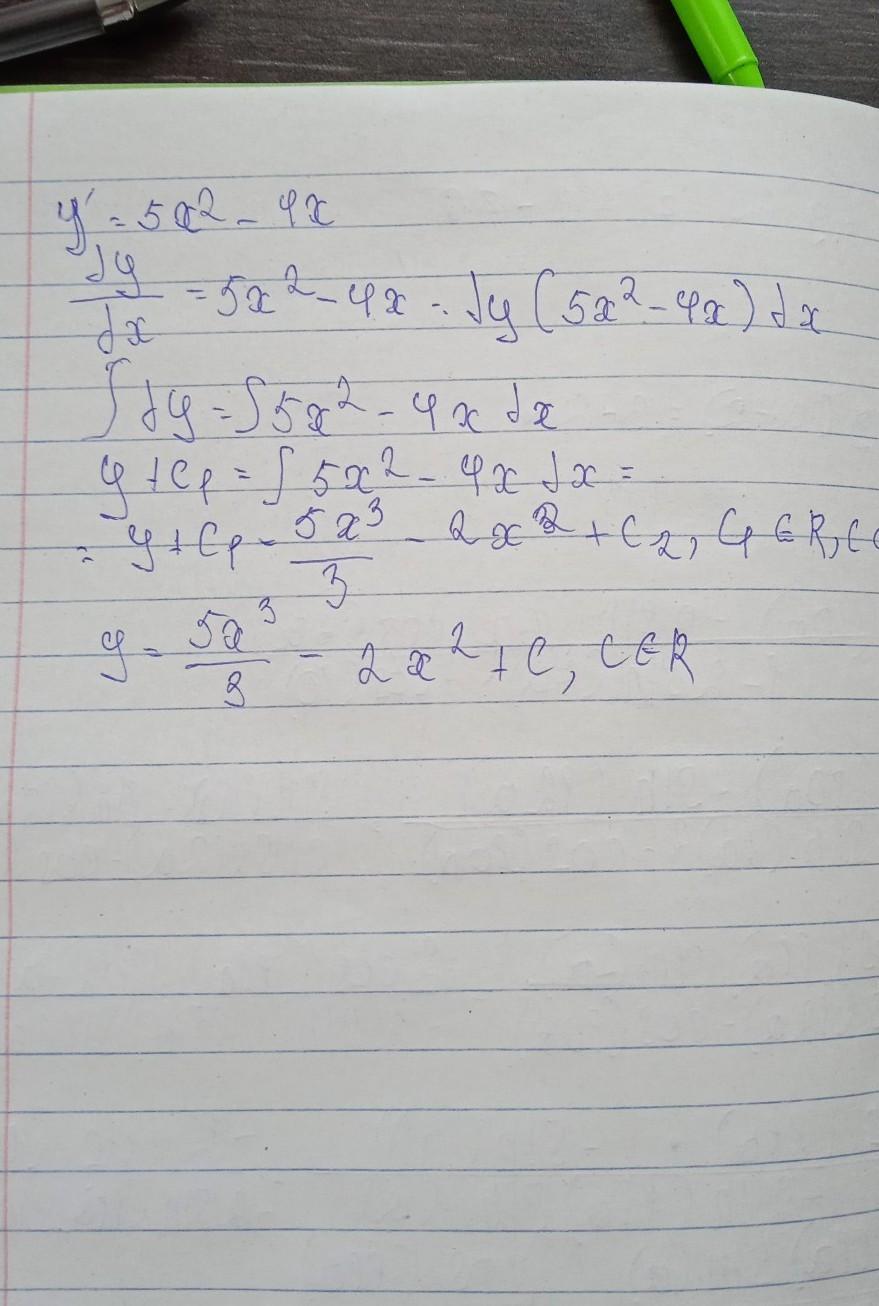 y' = 5x² - 4x
dy/dx = 5x² - 4x = dy (5x² - 4x) dx
∫dy = ∫5x² - 4x dx
y + C₁ = ∫ 5x² - 4x dx =
= y + C₁ = 5x³/3 - 2x² + C₂, C₁ ∈ R, C
y = 5x³/3 - 2x² + C, C ∈ R